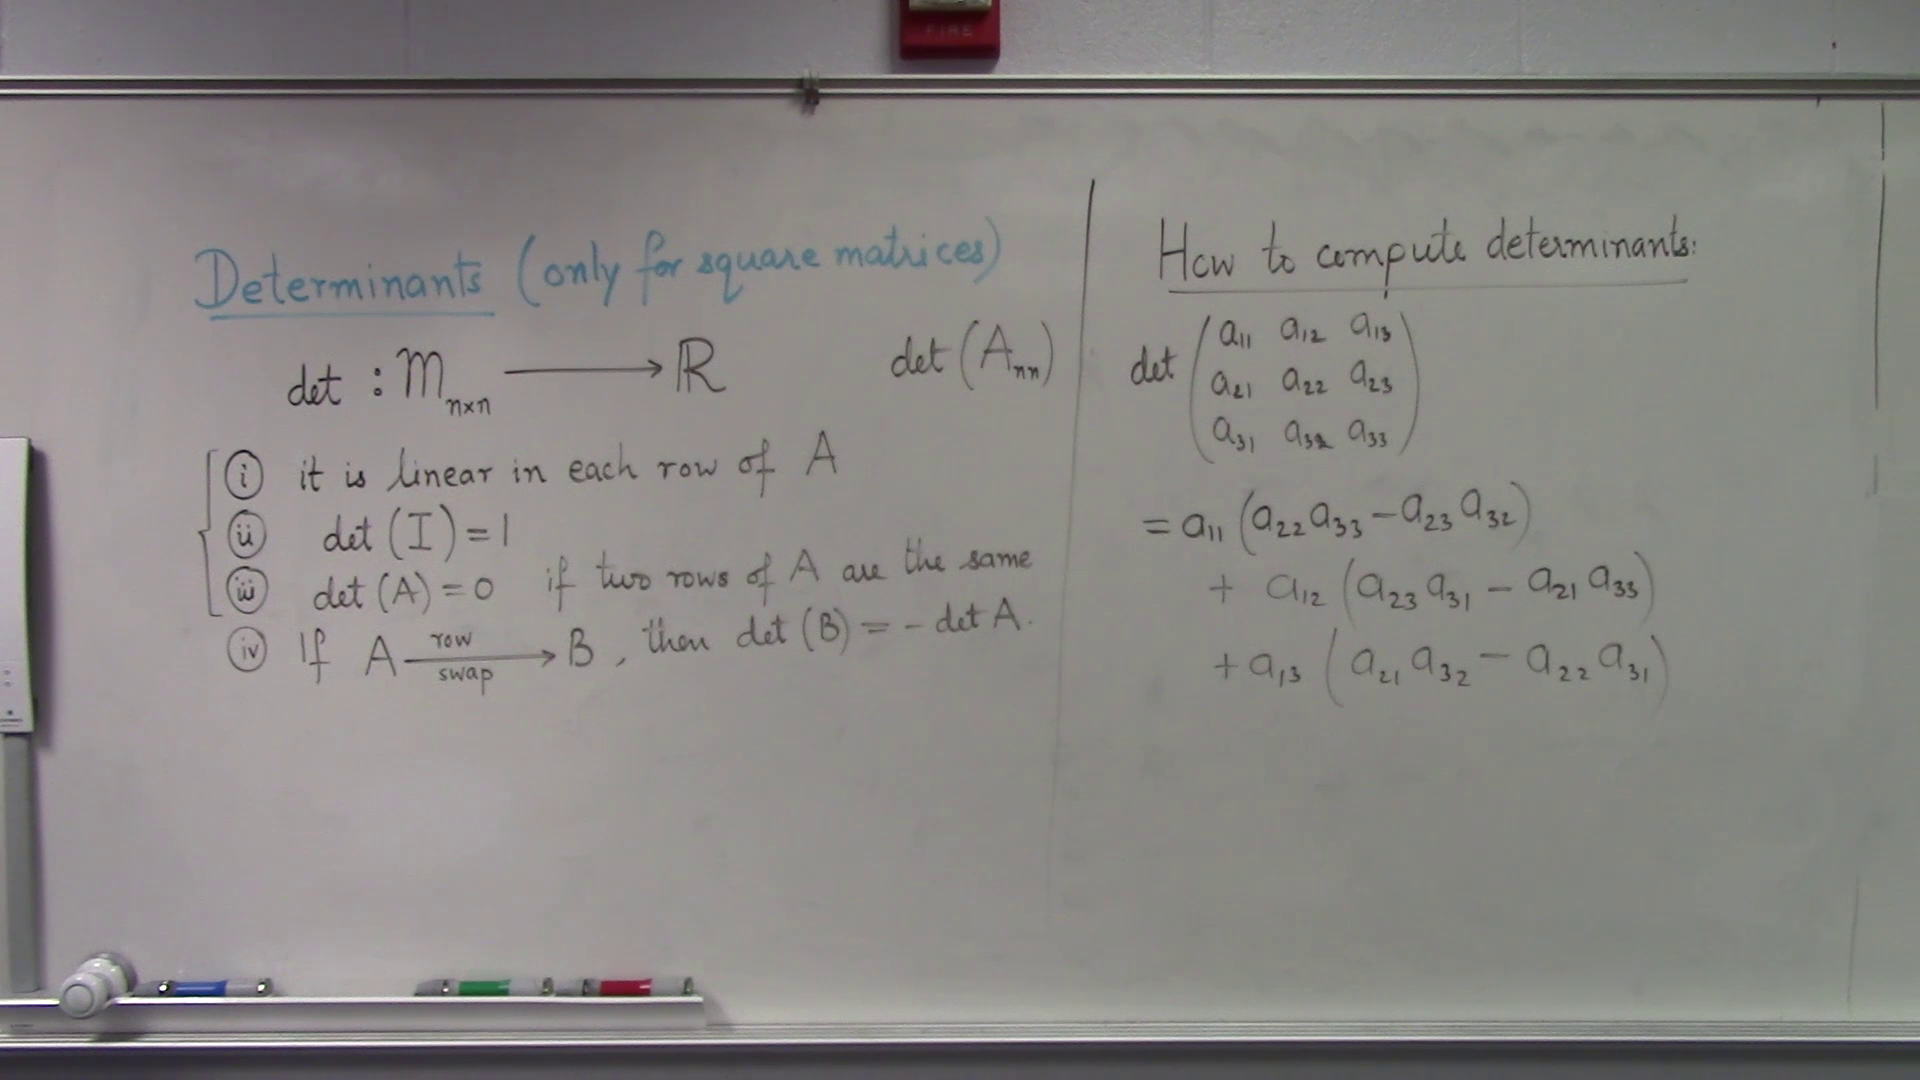 FIRE
Determinants (only for square matrices)
det : M_{n×n} ⟶ ℝ det (A_{nn})
(i) it is linear in each row of A
(ii) det (I) = 1
(iii) det (A) = 0 if two rows of A are the same
(iv) If A —row swap→ B, then det (B) = - det A.
How to compute determinants:
det ( a₁₁ a₁₂ a₁₃
a₂₁ a₂₂ a₂₃
a₃₁ a₃₂ a₃₃ )
= a₁₁ (a₂₂ a₃₃ - a₂₃ a₃₂)
+ a₁₂ (a₂₃ a₃₁ - a₂₁ a₃₃)
+ a₁₃ (a₂₁ a₃₂ - a₂₂ a₃₁)